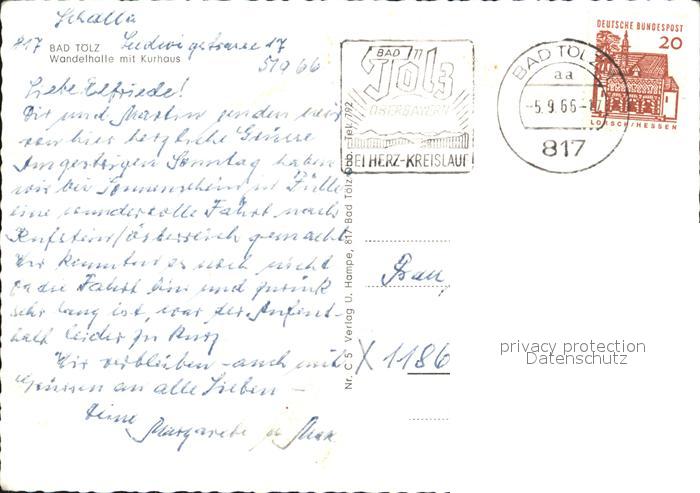 Scholla
817 BAD TÖLZ Ludwigstrasse 17
Wandelhalte mit Kurhaus
5/9 66
Liebe Elfriede!
Dir und Martin senden wir
von hier herzliche Grüsse
Am gestrigen Sonntag haben
wir bei Sonnenschein in Fülle
eine wundervolle Fahrt nach
Kufstein/Österreich gemacht
Wir konnten es noch nicht
da die Fahrt hin und zurück
sehr lang ist, war der Aufent-
halt leider zu kurz
Wir verbleiben - auch mit
Grüssen an alle Lieben -
Deine
Margarete u Max
Nr. C 5 Verlag U. Hampe, 817 Bad Tölz/Obb. Tel. 782
BAD
Tölz
OBERBAYERN
BEI HERZ-KREISLAUF
BAD TÖLZ
aa
-5.9.66-17
817
DEUTSCHE BUNDESPOST
20
LORSCH/HESSEN
Frau
X 1186
privacy protection
Datenschutz